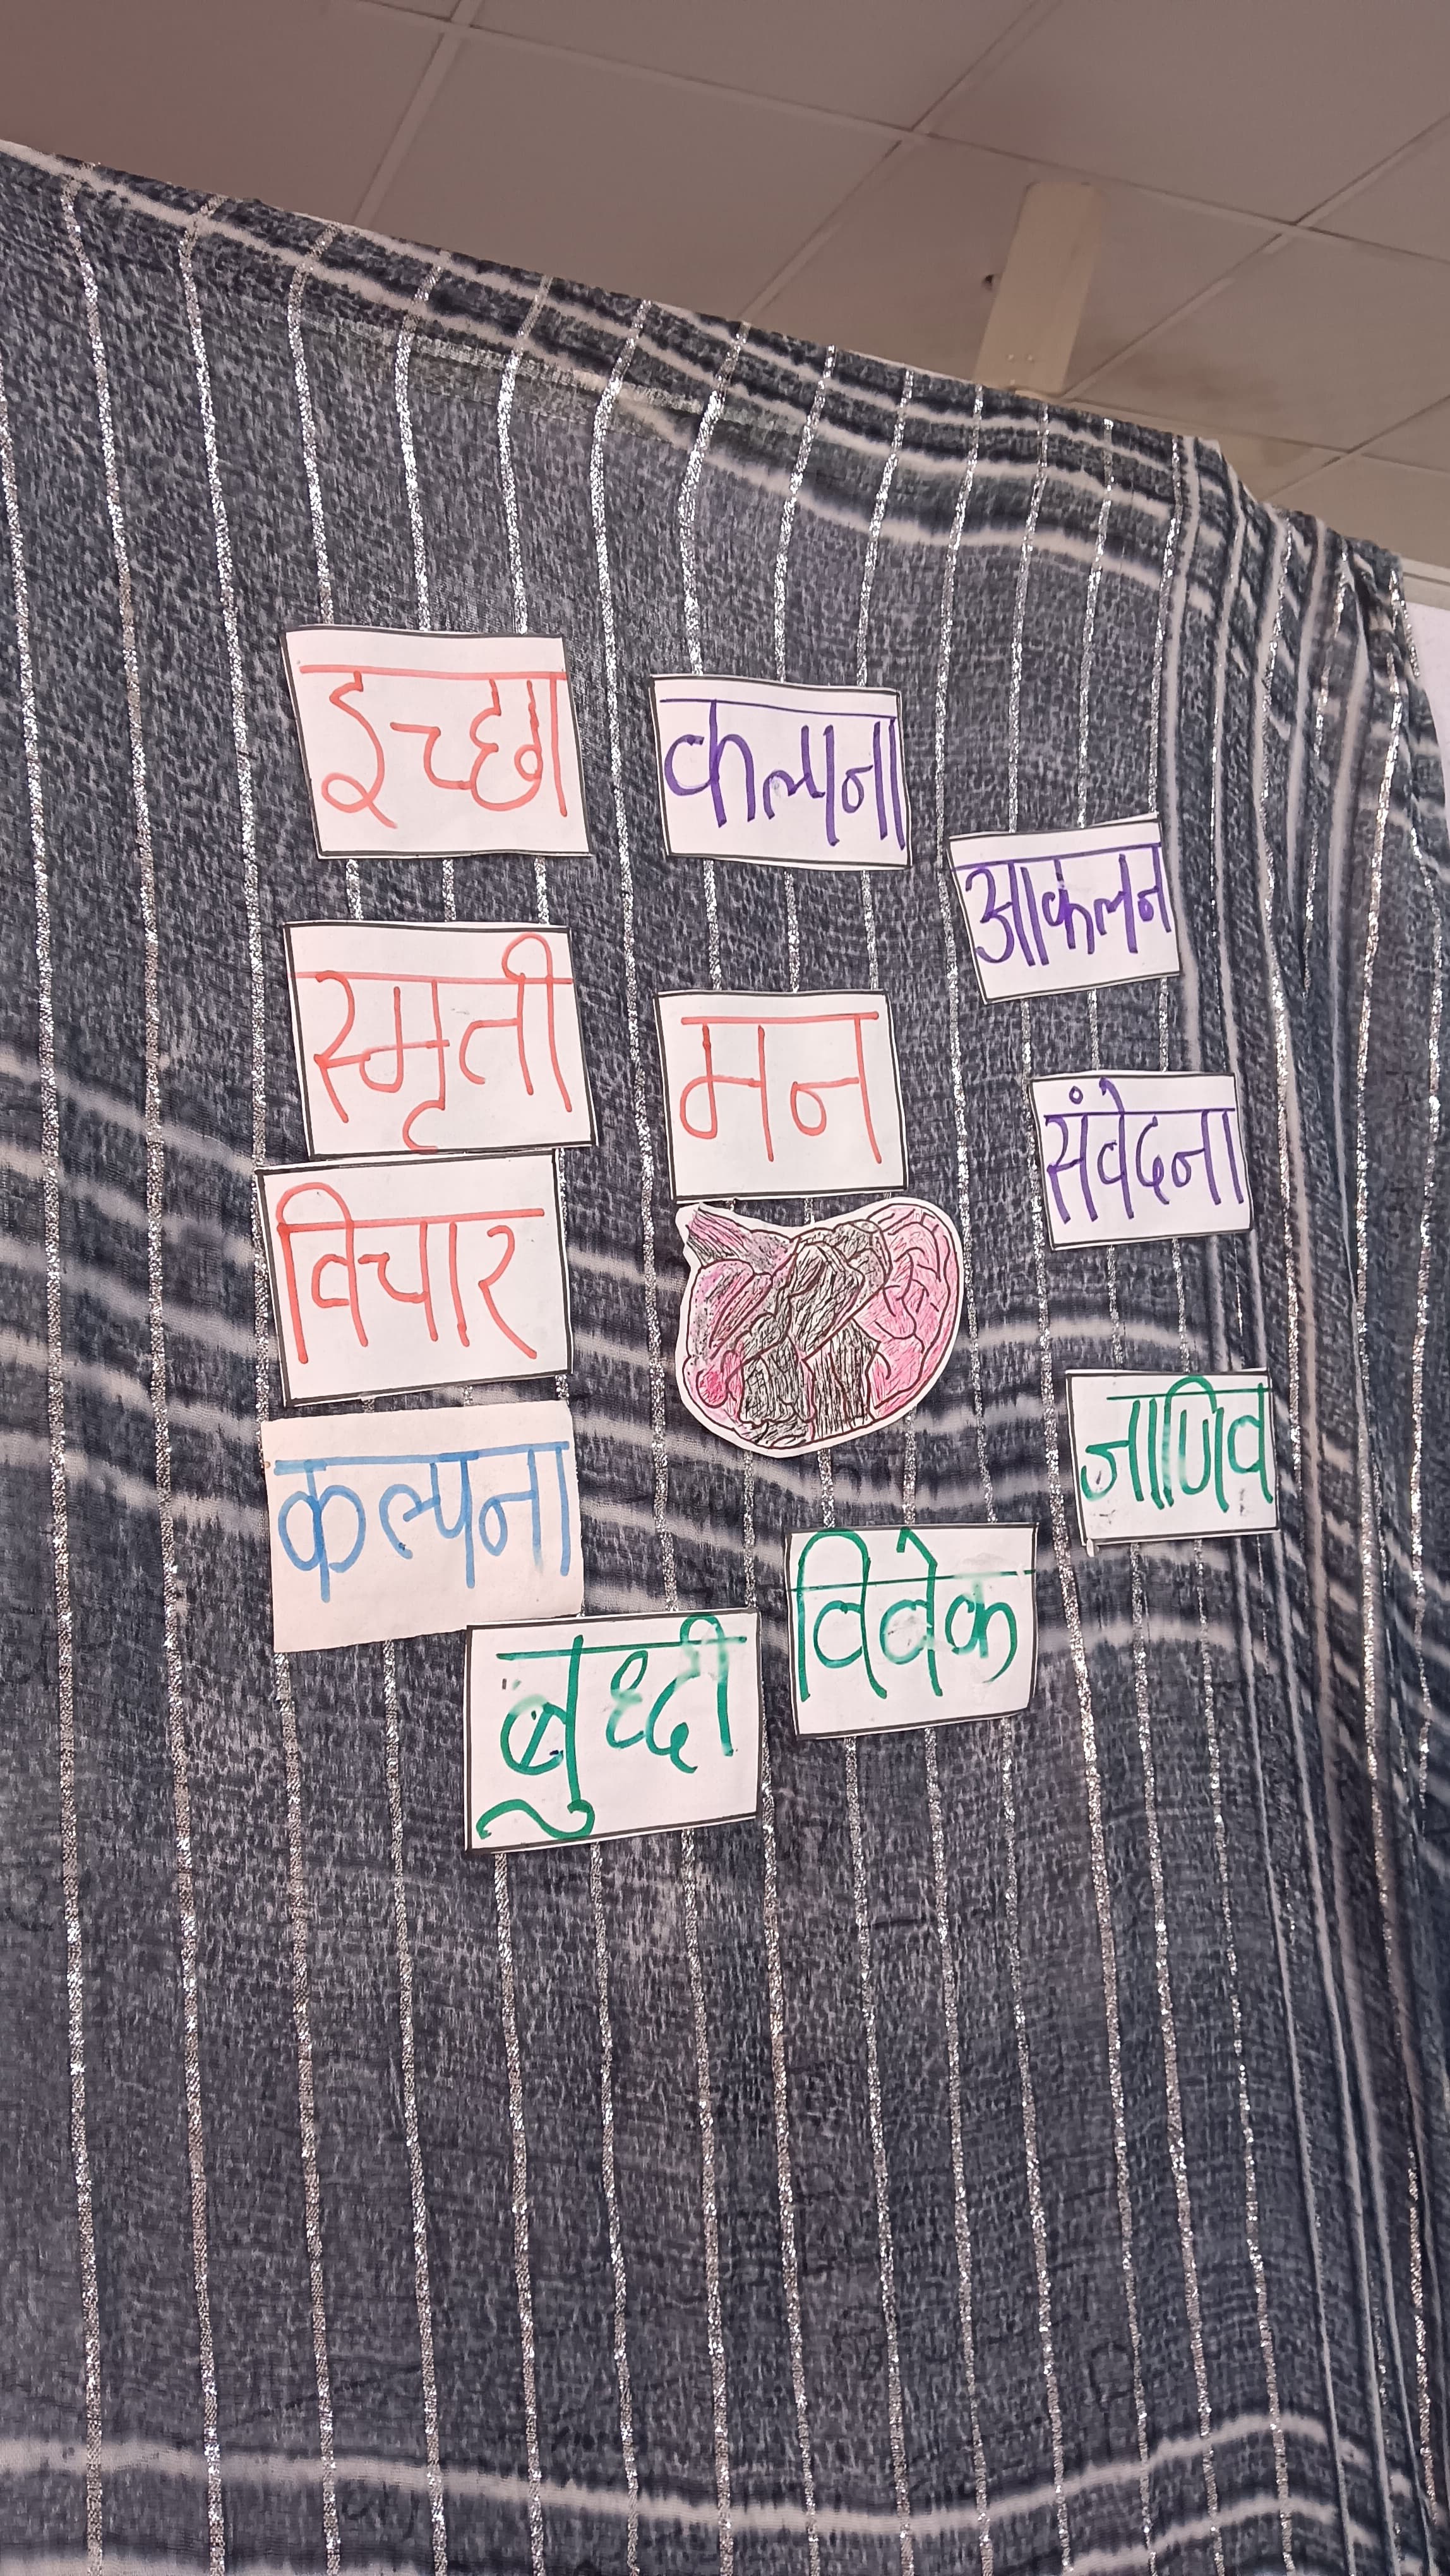 इच्छा
कल्पना
आकलन
स्मृती
मन
संवेदना
विचार
कल्पना
जाणिव
विवेक
बुध्दी